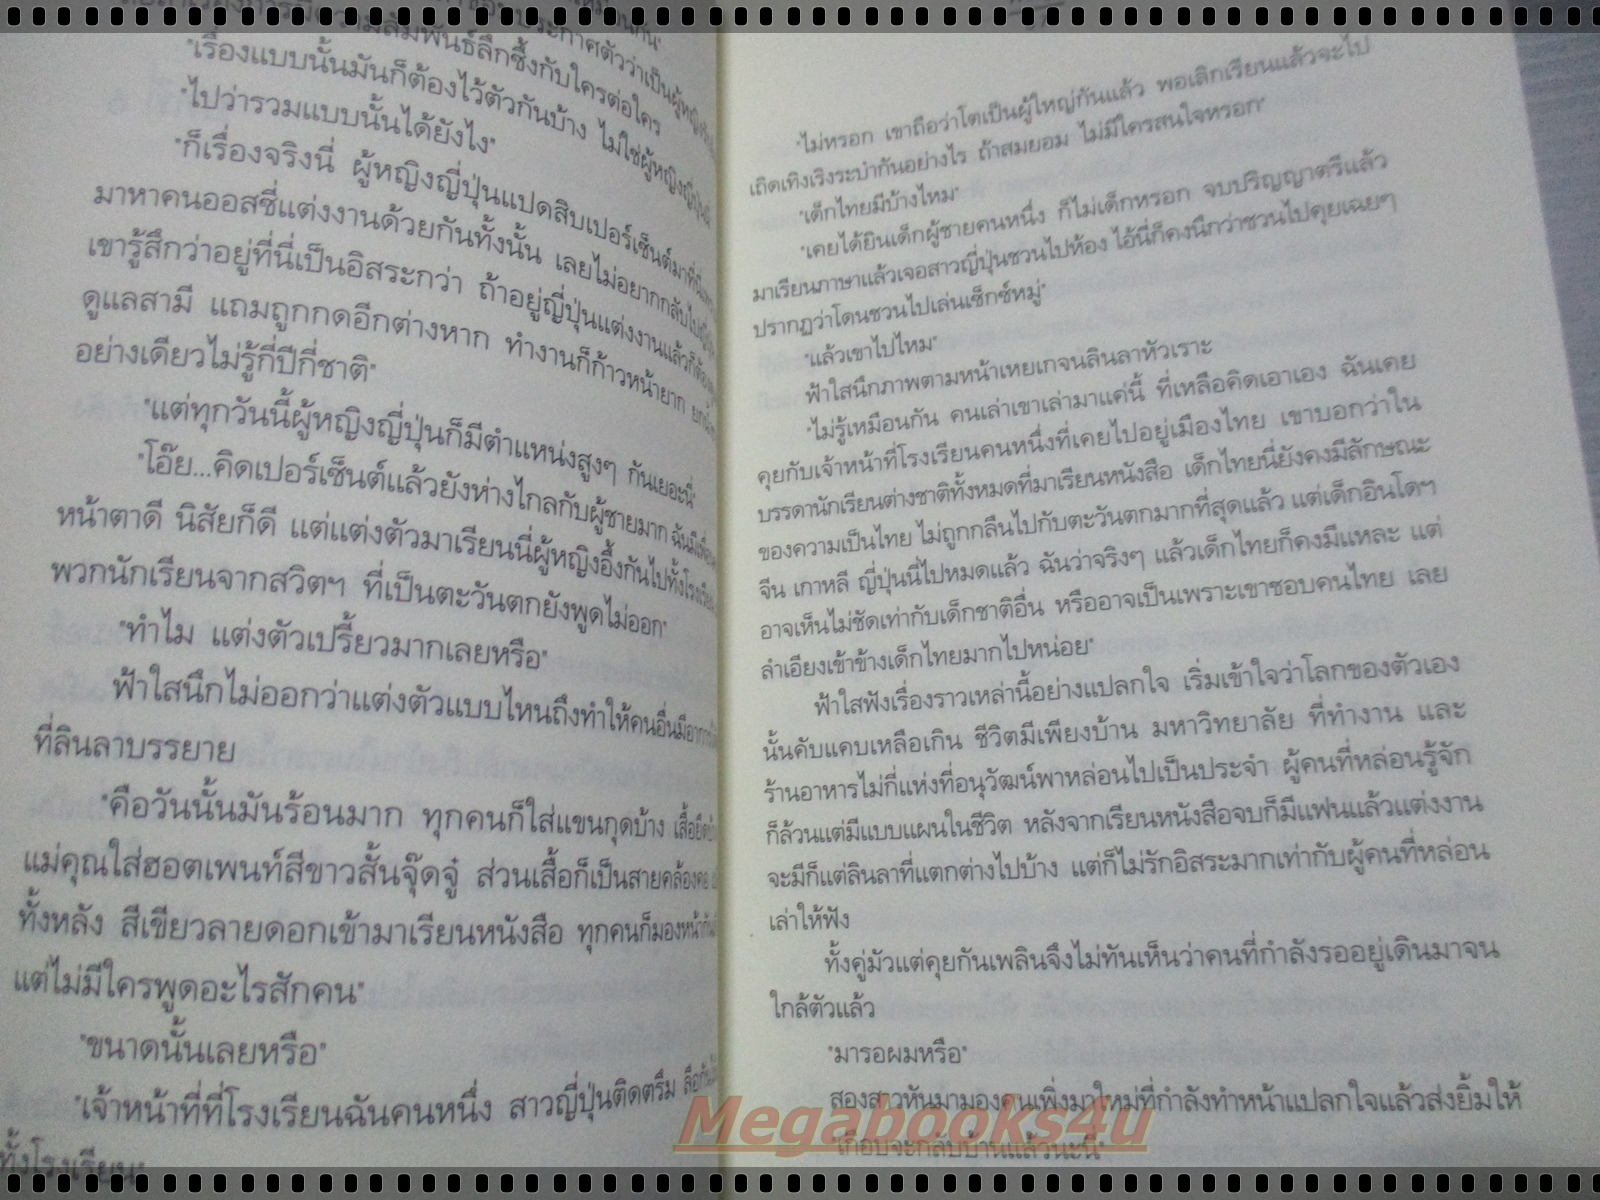 เหมือนกัน"
ประกาศตัวว่าเป็นผู้หญิง
ความสัมพันธ์ลึกซึ้งกับใครต่อใคร
"เรื่องแบบนั้นมันก็ต้องไว้ตัวกันบ้าง ไม่ใช่ผู้หญิงญี่ปุ่น
"ไปว่ารวมแบบนั้นได้ยังไง"
"ก็เรื่องจริงนี่ ผู้หญิงญี่ปุ่นแปดสิบเปอร์เซ็นต์มาที่นี่
มาหาคนออสซี่แต่งงานด้วยกันทั้งนั้น เลยไม่อยากกลับไป
เขารู้สึกว่าอยู่ที่นี่เป็นอิสระกว่า ถ้าอยู่ญี่ปุ่นแต่งงานแล้วก็ต้อง
ดูแลสามี แถมถูกกดอีกต่างหาก ทำงานก็ก้าวหน้ายาก
อย่างเดียวไม่รู้กี่ปีกี่ชาติ"
"แต่ทุกวันนี้ผู้หญิงญี่ปุ่นก็มีตำแหน่งสูงๆ กันเยอะนี่"
"โอ๊ย...คิดเปอร์เซ็นต์แล้วยังห่างไกลกับผู้ชายมาก ฉันมีเพื่อน
หน้าตาดี นิสัยก็ดี แต่แต่งตัวมาเรียนนี่ผู้หญิงอึ้งกันไปทั้งโรงเรียน
พวกนักเรียนจากสวิตฯ ที่เป็นตะวันตกยังพูดไม่ออก"
"ทำไม แต่งตัวเปรี้ยวมากเลยหรือ"
ฟ้าใสนึกไม่ออกว่าแต่งตัวแบบไหนถึงทำให้คนอื่นมีอาการ
ที่ลินลาบรรยาย
"คือวันนั้นมันร้อนมาก ทุกคนก็ใส่แขนกุดบ้าง เสื้อยืดบ้าง
แม่คุณใส่ฮอตเพนท์สีขาวสั้นจุ๊ดจู๋ ส่วนเสื้อก็เป็นสายคล้องคอ
ทั้งหลัง สีเขียวลายดอกเข้ามาเรียนหนังสือ ทุกคนก็มองหน้ากัน
แต่ไม่มีใครพูดอะไรสักคน"
"ขนาดนั้นเลยหรือ"
"เจ้าหน้าที่ที่โรงเรียนฉันคนหนึ่ง สาวญี่ปุ่นติดตรึม ลือกัน
ทั้งโรงเรียน"
"ไม่หรอก เขาถือว่าโตเป็นผู้ใหญ่กันแล้ว พอเลิกเรียนแล้วจะไป
เถิดเทิงเริงระบำกันอย่างไร ถ้าสมยอม ไม่มีใครสนใจหรอก"
"เด็กไทยมีบ้างไหม"
"เคยได้ยินเด็กผู้ชายคนหนึ่ง ก็ไม่เด็กหรอก จบปริญญาตรีแล้ว
มาเรียนภาษาแล้วเจอสาวญี่ปุ่นชวนไปห้อง ไอ้นี่ก็คงนึกว่าชวนไปคุยเฉยๆ
ปรากฏว่าโดนชวนไปเล่นเซ็กซ์หมู่"
"แล้วเขาไปไหม"
ฟ้าใสนึกภาพตามหน้าเหยเกจนลินลาหัวเราะ
"ไม่รู้เหมือนกัน คนเล่าเขาเล่ามาแค่นี้ ที่เหลือคิดเอาเอง ฉันเคย
คุยกับเจ้าหน้าที่โรงเรียนคนหนึ่งที่เคยไปอยู่เมืองไทย เขาบอกว่าใน
บรรดานักเรียนต่างชาติทั้งหมดที่มาเรียนหนังสือ เด็กไทยนี่ยังคงมีลักษณะ
ของความเป็นไทย ไม่ถูกกลืนไปกับตะวันตกมากที่สุดแล้ว แต่เด็กอินโดฯ
จีน เกาหลี ญี่ปุ่นนี่ไปหมดแล้ว ฉันว่าจริงๆ แล้วเด็กไทยก็คงมีแหละ แต่
อาจเห็นไม่ชัดเท่ากับเด็กชาติอื่น หรืออาจเป็นเพราะเขาชอบคนไทย เลย
ลำเอียงเข้าข้างเด็กไทยมากไปหน่อย"
ฟ้าใสฟังเรื่องราวเหล่านี้อย่างแปลกใจ เริ่มเข้าใจว่าโลกของตัวเอง
นั้นคับแคบเหลือเกิน ชีวิตมีเพียงบ้าน มหาวิทยาลัย ที่ทำงาน และ
ร้านอาหารไม่กี่แห่งที่อนุวัฒน์พาหล่อนไปเป็นประจำ ผู้คนที่หล่อนรู้จัก
ก็ล้วนแต่มีแบบแผนในชีวิต หลังจากเรียนหนังสือจบก็มีแฟนแล้วแต่งงาน
จะมีก็แต่ลินลาที่แตกต่างไปบ้าง แต่ก็ไม่รักอิสระมากเท่ากับผู้คนที่หล่อน
เล่าให้ฟัง
ทั้งคู่มัวแต่คุยกันเพลินจึงไม่ทันเห็นว่าคนที่กำลังรออยู่เดินมาจน
ใกล้ตัวแล้ว
"มารอผมหรือ"
สองสาวหันมามองคนเพิ่งมาใหม่ที่กำลังทำหน้าแปลกใจแล้วส่งยิ้มให้
"เกือบจะกลับบ้านแล้วนะนี่"
Megabooks4u